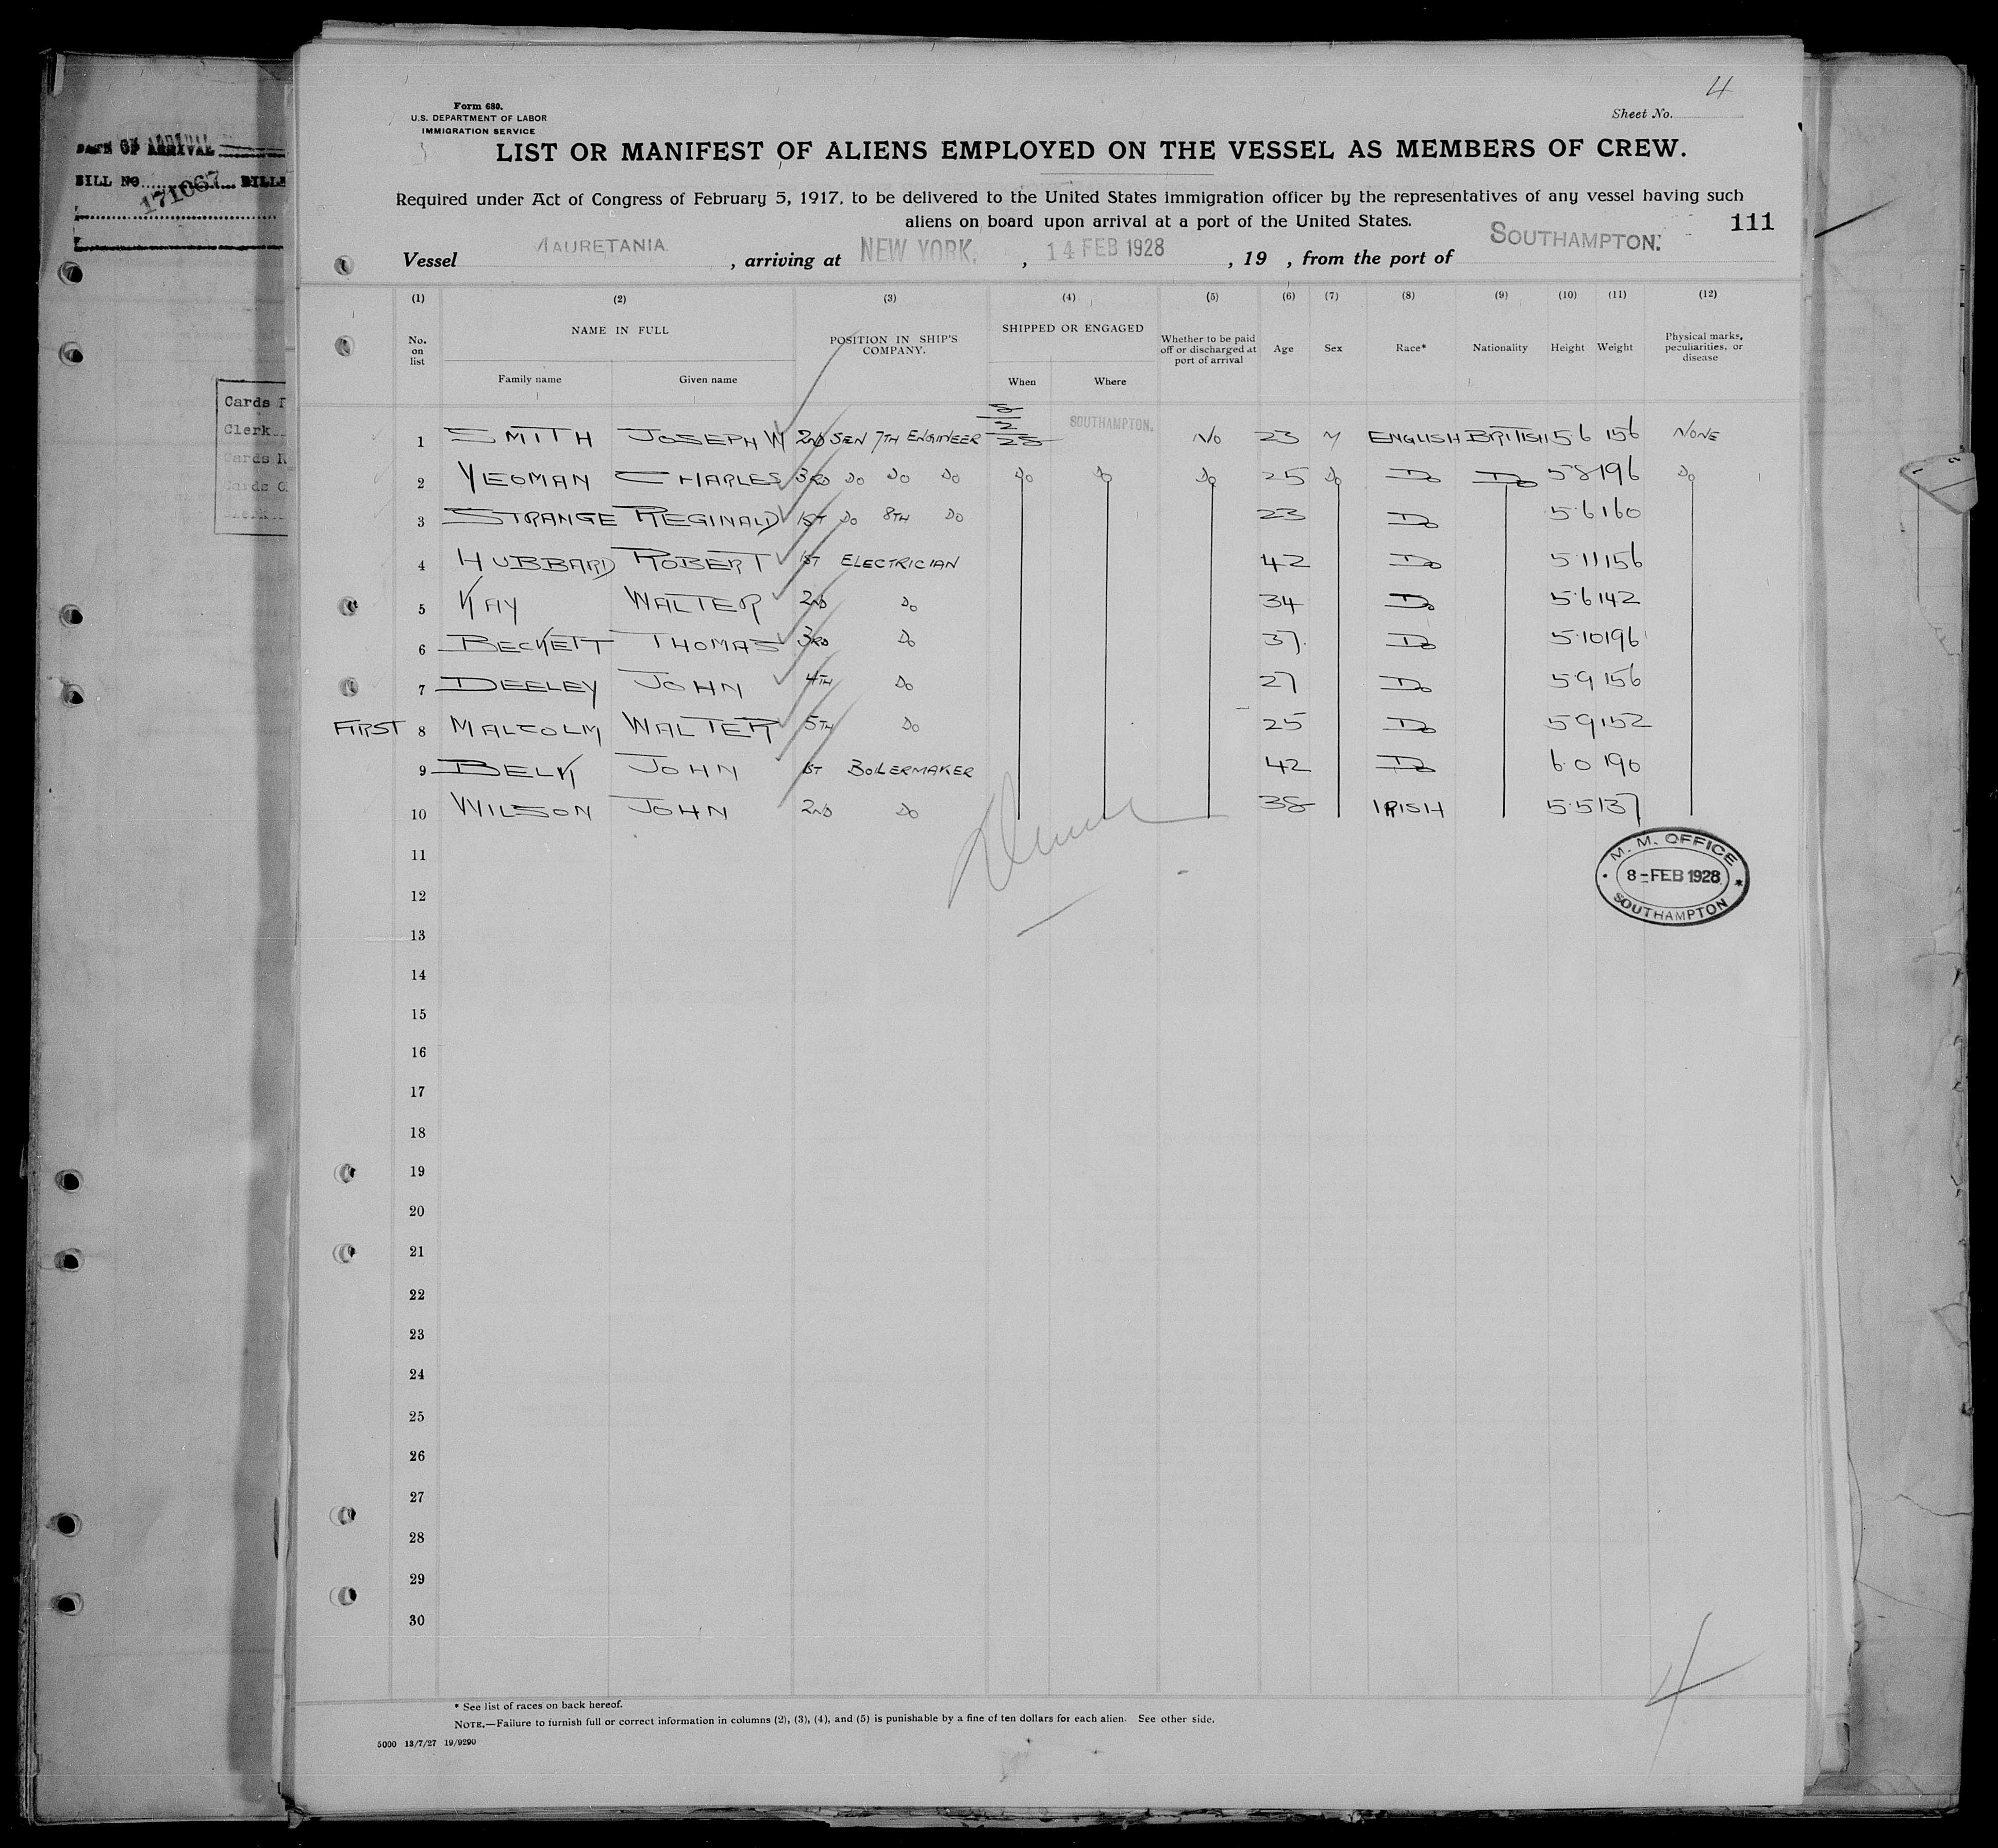 DATE OF ARRIVAL
BILL NO. 171067
Cards
Clerk
Cards
Cards
4
Form 680.
U.S. DEPARTMENT OF LABOR
IMMIGRATION SERVICE
Sheet No.
LIST OR MANIFEST OF ALIENS EMPLOYED ON THE VESSEL AS MEMBERS OF CREW.
Required under Act of Congress of February 5, 1917, to be delivered to the United States immigration officer by the representatives of any vessel having such
aliens on board upon arrival at a port of the United States.
111
Vessel MAURETANIA. , arriving at NEW YORK. , 14 FEB 1928 , 19 , from the port of SOUTHAMPTON.
(1) (2) (3) (4) (5) (6) (7) (8) (9) (10) (11) (12)
No. on list NAME IN FULL POSITION IN SHIP'S COMPANY. SHIPPED OR ENGAGED Whether to be paid off or discharged at port of arrival Age Sex Race* Nationality Height Weight Physical marks, peculiarities, or disease
Family name Given name When Where
1 SMITH JOSEPH W 2ND SEN 7TH ENGINEER 8/2/28 SOUTHAMPTON. NO 23 M ENGLISH BRITISH 5 6 156 NONE
2 YEOMAN CHARLES 3RD DO DO DO DO DO DO 25 DO DO DO 5 8 196 DO
3 STRANGE REGINALD 1ST DO 8TH DO 23 DO 5.6 160
4 HUBBARD ROBERT 1ST ELECTRICIAN 42 DO 5.11 156
5 KAY WALTER 2ND DO 34 DO 5.6 142
6 BECKETT THOMAS 3RD DO 37. DO 5.10 196
7 DEELEY JOHN 4TH DO 27 DO 5.9 156
FIRST 8 MALCOLM WALTER 5TH DO 25 DO 5 9 152
9 BELK JOHN 1ST BOILERMAKER 42 DO 6.0 190
10 WILSON JOHN 2ND DO 38 IRISH 5.5 137
11
M. M. OFFICE
8-FEB 1928
SOUTHAMPTON
12
13
14
15
16
17
18
19
20
21
22
23
24
25
26
27
28
29
30
4
* See list of races on back hereof.
NOTE.—Failure to furnish full or correct information in columns (2), (3), (4), and (5) is punishable by a fine of ten dollars for each alien. See other side.
5000 13/7/27 19/9290